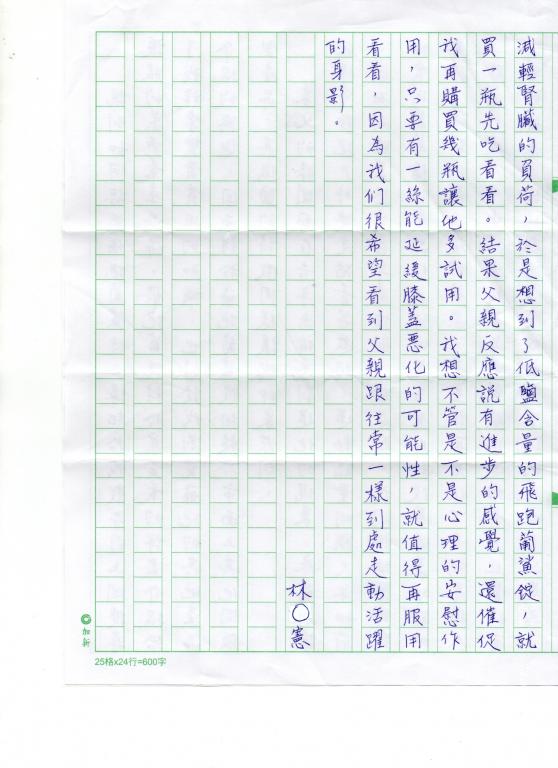 減輕腎臟的負荷，於是想到了低鹽含量的飛跑葡鯊錠，就
買一瓶先吃看看。結果父親反應說有進步的感覺，還催促
我再購買幾瓶讓他多試用。我想不管是不是心理的安慰作
用，只要有一絲能延緩膝蓋惡化的可能性，就值得再服用
看看，因為我们很希望看到父親跟往常一樣到處走動活躍
的身影。
林○憲
加新
25格x24行=600字